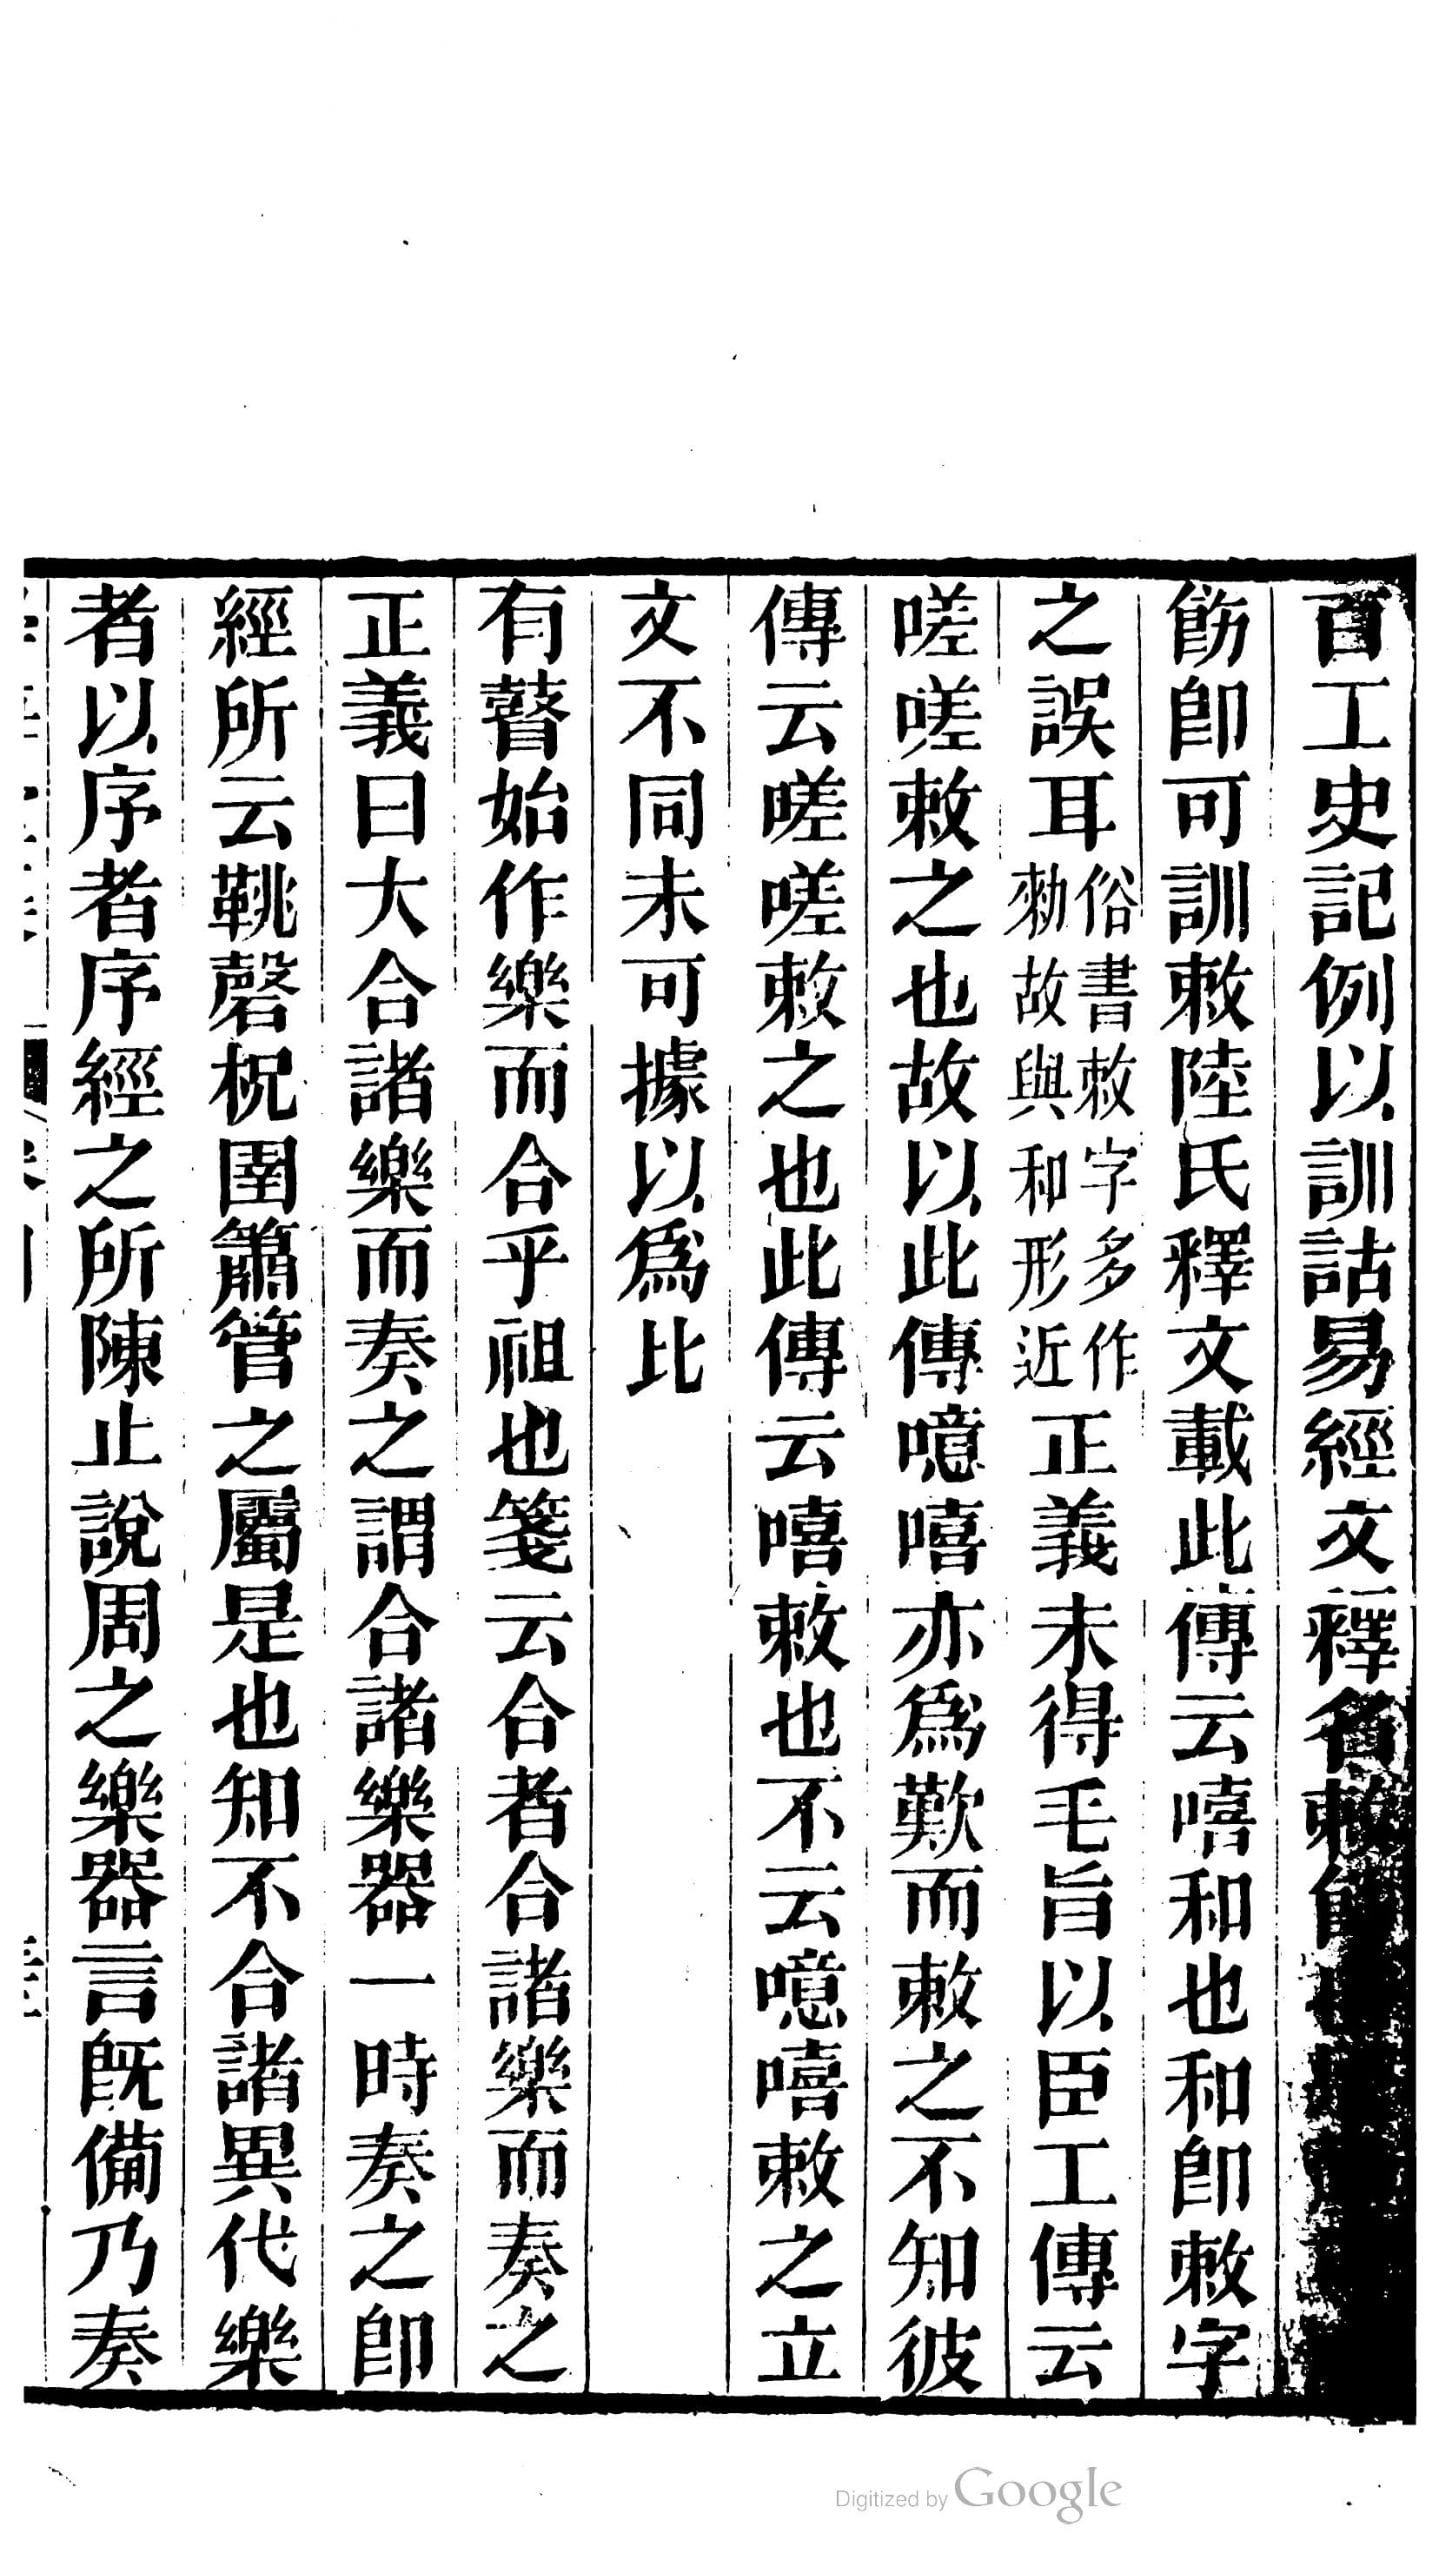 百工史記例以訓詁易經文釋名敕
飭卽可訓敕陸氏釋文載此傳云嘻和也和卽敕字
之誤耳俗書敕字多作勑故與和形近正義未得毛旨以臣工傳云
嗟嗟敕之也故以此傳噫嘻亦爲歎而敕之不知彼
傳云嗟嗟敕之也此傳云嘻敕也不云噫嘻敕之立
文不同未可據以爲比
有瞽始作樂而合乎祖也箋云合者合諸樂而奏之
正義曰大合諸樂而奏之謂合諸樂器一時奏之卽
經所云鞉磬柷圉簫管之屬是也知不合諸異代樂
者以序者序經之所陳止說周之樂器言旣備乃奏
Digitized by Google